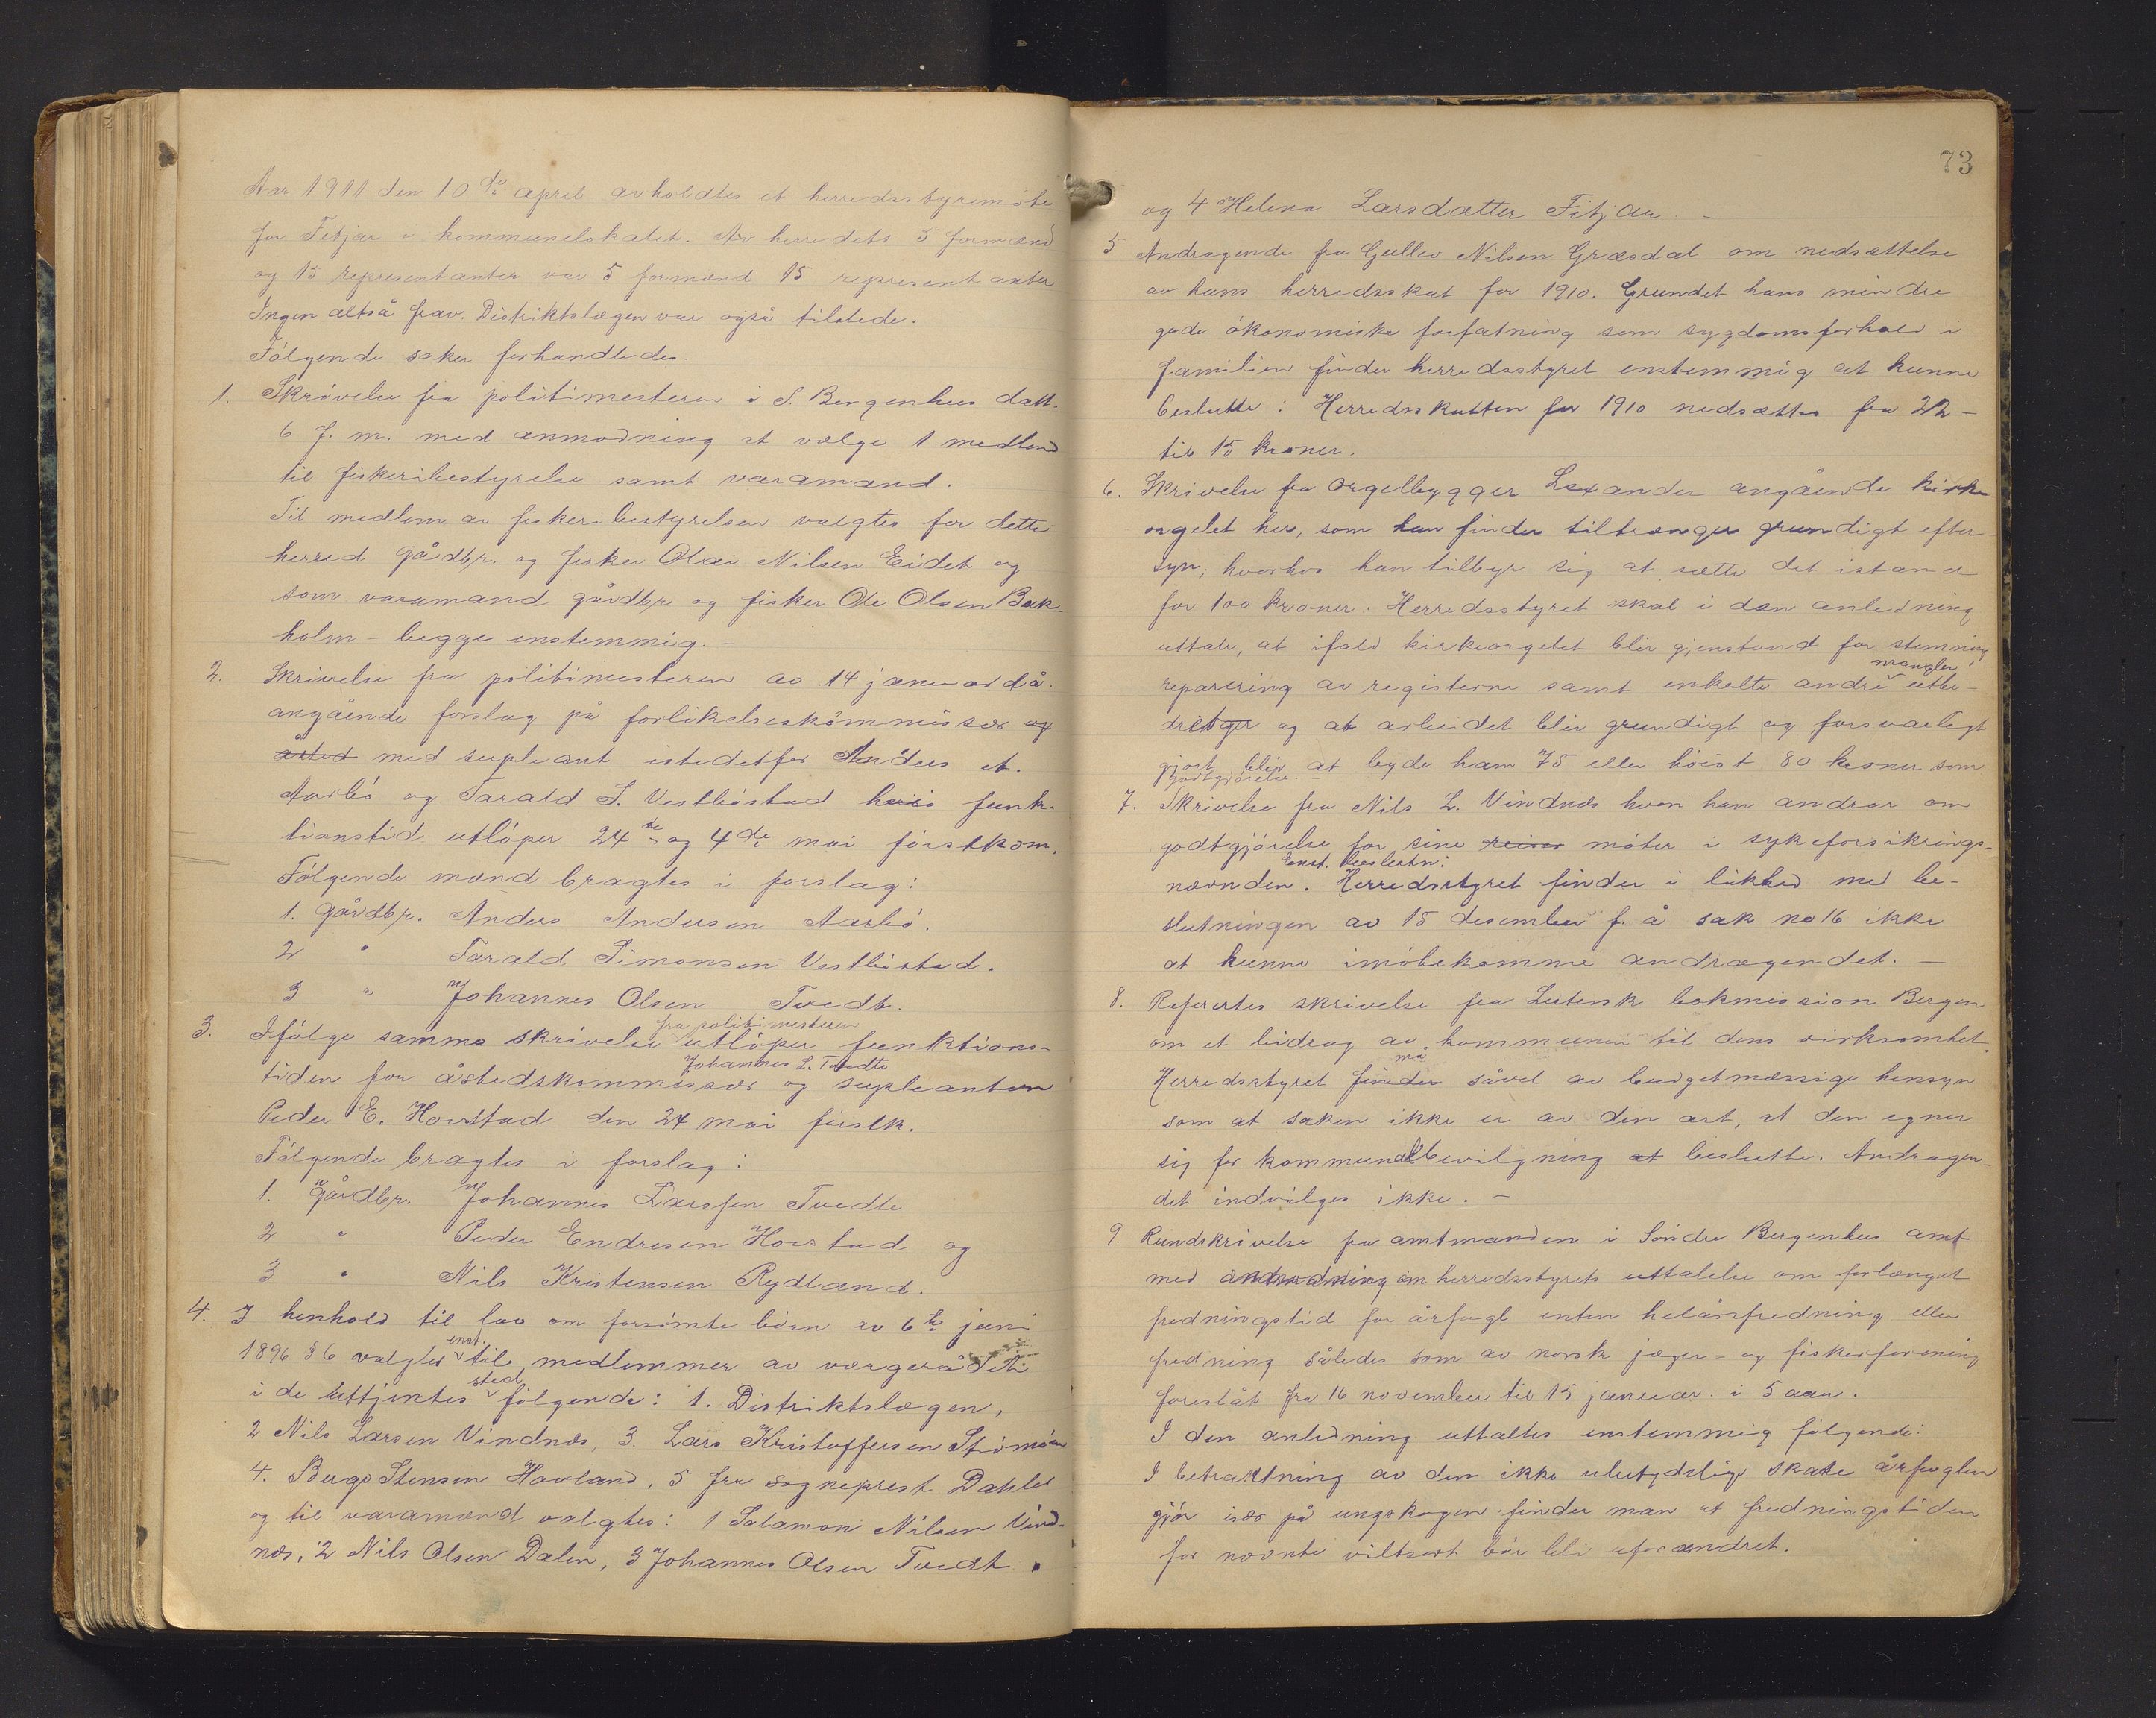 Aar 1911 den 10de april avholdtes et herredsstyremøte
for Fitjar i kommunelokalet. Av herredets 5 formænd
og 15 representanter var 5 formænd 15 representanter
Ingen altså frav. Distriktslægen var også tilstede.
Følgende saker forhandledes.
1. Skrivelse fra politimesteren i S. Bergenhus datt.
6 f. m. med anmodning at vælge 1 medlem
til fiskeribestyrelse samt varamand.
Til medlem av fiskeribestyrelsen valgtes for dette
herred gårdbr. og fisker Olai Nilsen Eidet og
som varamand gårdbr og fisker Ole Olsen Bak-
holm - begge enstemmig. -
2. Skrivelse fra politimesteren av 14 januar d å.
angående forslag på forlikelseskommissær og
åsted med supleant istedetfor Anders A.
Aarbø og Tarald S. Vestbøstad hvis funk-
tionstid utløper 24de og 4de mai førstkom.
Følgende mænd bragtes i forslag:
1. gårdbr. Anders Andersen Aarbø.
2 " Tarald Simonsen Vestbøstad.
3 " Johannes Olsen Tvedt.
fra politimesteren
3. Ifølge samme skrivelse utløper funktions-
Johannes L. Tvedte
tiden for åstedskommissær og supleanten
Peder E. Hovstad den 24 mai førstk.
Følgende bragtes i forslag:
1. gårdbr. Johannes Larssen Tvedte
2 " Peder Endresen Hovstad og
3 " Nils Kristensen Rydland.
4. I henhold til lov om forsømte børn av 6te juni
enst.
1896 § 6 valgtes til medlemmer av vergeråd
sted
i de uttjentes følgende: 1. Distriktslægen,
2 Nils Larsen Vindnæs, 3. Lars Kristoffersen Strømøen
4. Berge Stensen Havland, 5 fru sogneprest Dahles
og til varamænd valgtes: 1 Salamon Nilsen Vind-
næs, 2 Nils Olsen Dalen, 3 Johannes Olsen Tvedt
73
og 4 Helena Larsdatter Fitjar -
5 Andragende fra Gullev Nilsen Græsdal om nedsættelse
av hans herredsskat for 1910. Grundet hans mindre
gode økonomiske forfatning som sygdomsforhold i
familien finder herredsstyret enstemmig at kunne
beslutte: Herredsskatten for 1910 nedsættes fra 22 -
til 15 kroner.
6. Skrivelse fra orgelbygger Lexander angående kirke
orgelet her, som han finder tiltrænger grundigt efter
syn, hvorhos han tilbyr sig at sætte det istand
for 100 kroner. Herredsstyret skal i den anledning
uttale, at ifald kirkeorgelet blir gjenstand for stemning
mangler
reparering av registerne samt enkelte andre utbe-
dret og at arbeidet blir grundigt og forsvarlegt
gjort blir at byde ham 75 eller høist 80 kroner som
godtgjørelse. -
7. Skrivelse fra Nils L. Vindnæs hvori han andrar om
godtgjørelse for sine reiser møter i sykeforsikrings-
Enst. beslutn:
nævnden. Herredsstyret finder i likhed med be-
slutningen av 15 desember f. å sak no 16 ikke
at kunne imøtekomme andragendet. -
8. Refertes skrivelse fra Lutersk bokmission Bergen
om et bidrag av kommunen til dens virksomhet.
må
Herredsstyret finder såvel av budgetmæssige hensyn
som at saken ikke er av den art, at den egner
sig for kommunalbevilgning at beslutte. Andragen-
det indvilges ikke. -
9. Rundskrivelse fra amtmanden i Søndre Bergenhus amt
med anmodning om herredsstyrets uttalelse om forlænget
fredningstid for årfugl enten helårsfredning eller
fredning således som av norsk jæger- og fiskerforening
foreslåt fra 16 november til 15 januar i 5 aar.
I den anledning uttaltes enstemmig følgende:
I betraktning av den ikke ubetydelige skade årfuglen
gjør især på ungskogen finder man at fredningstiden
for nævnte viltsort bør bli uforandret.